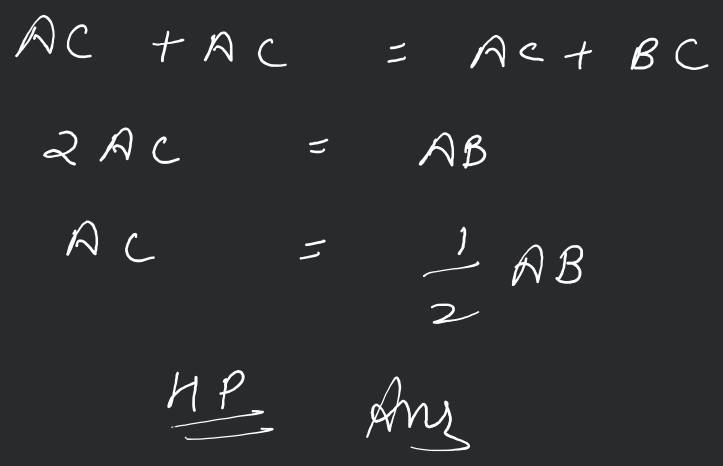 AC + AC = AC + BC
2 AC = AB
AC = 1/2 AB
HP Ans